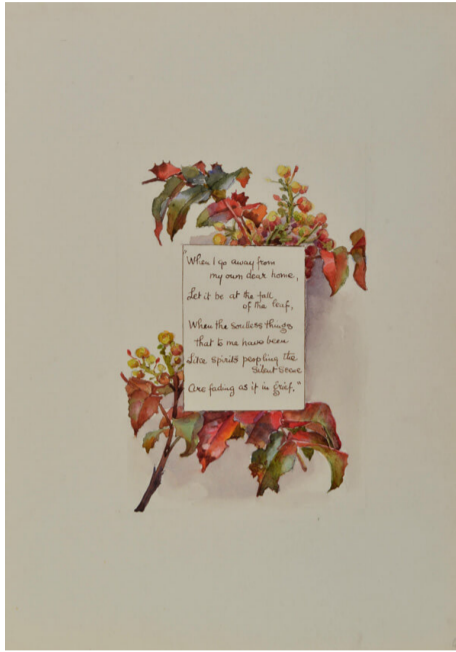 "When I go away from
my own dear home,
Let it be at the fall
of the leaf,
When the soulless things
that to me have been
Like spirits peopling the
silent scene
Are fading as if in grief."